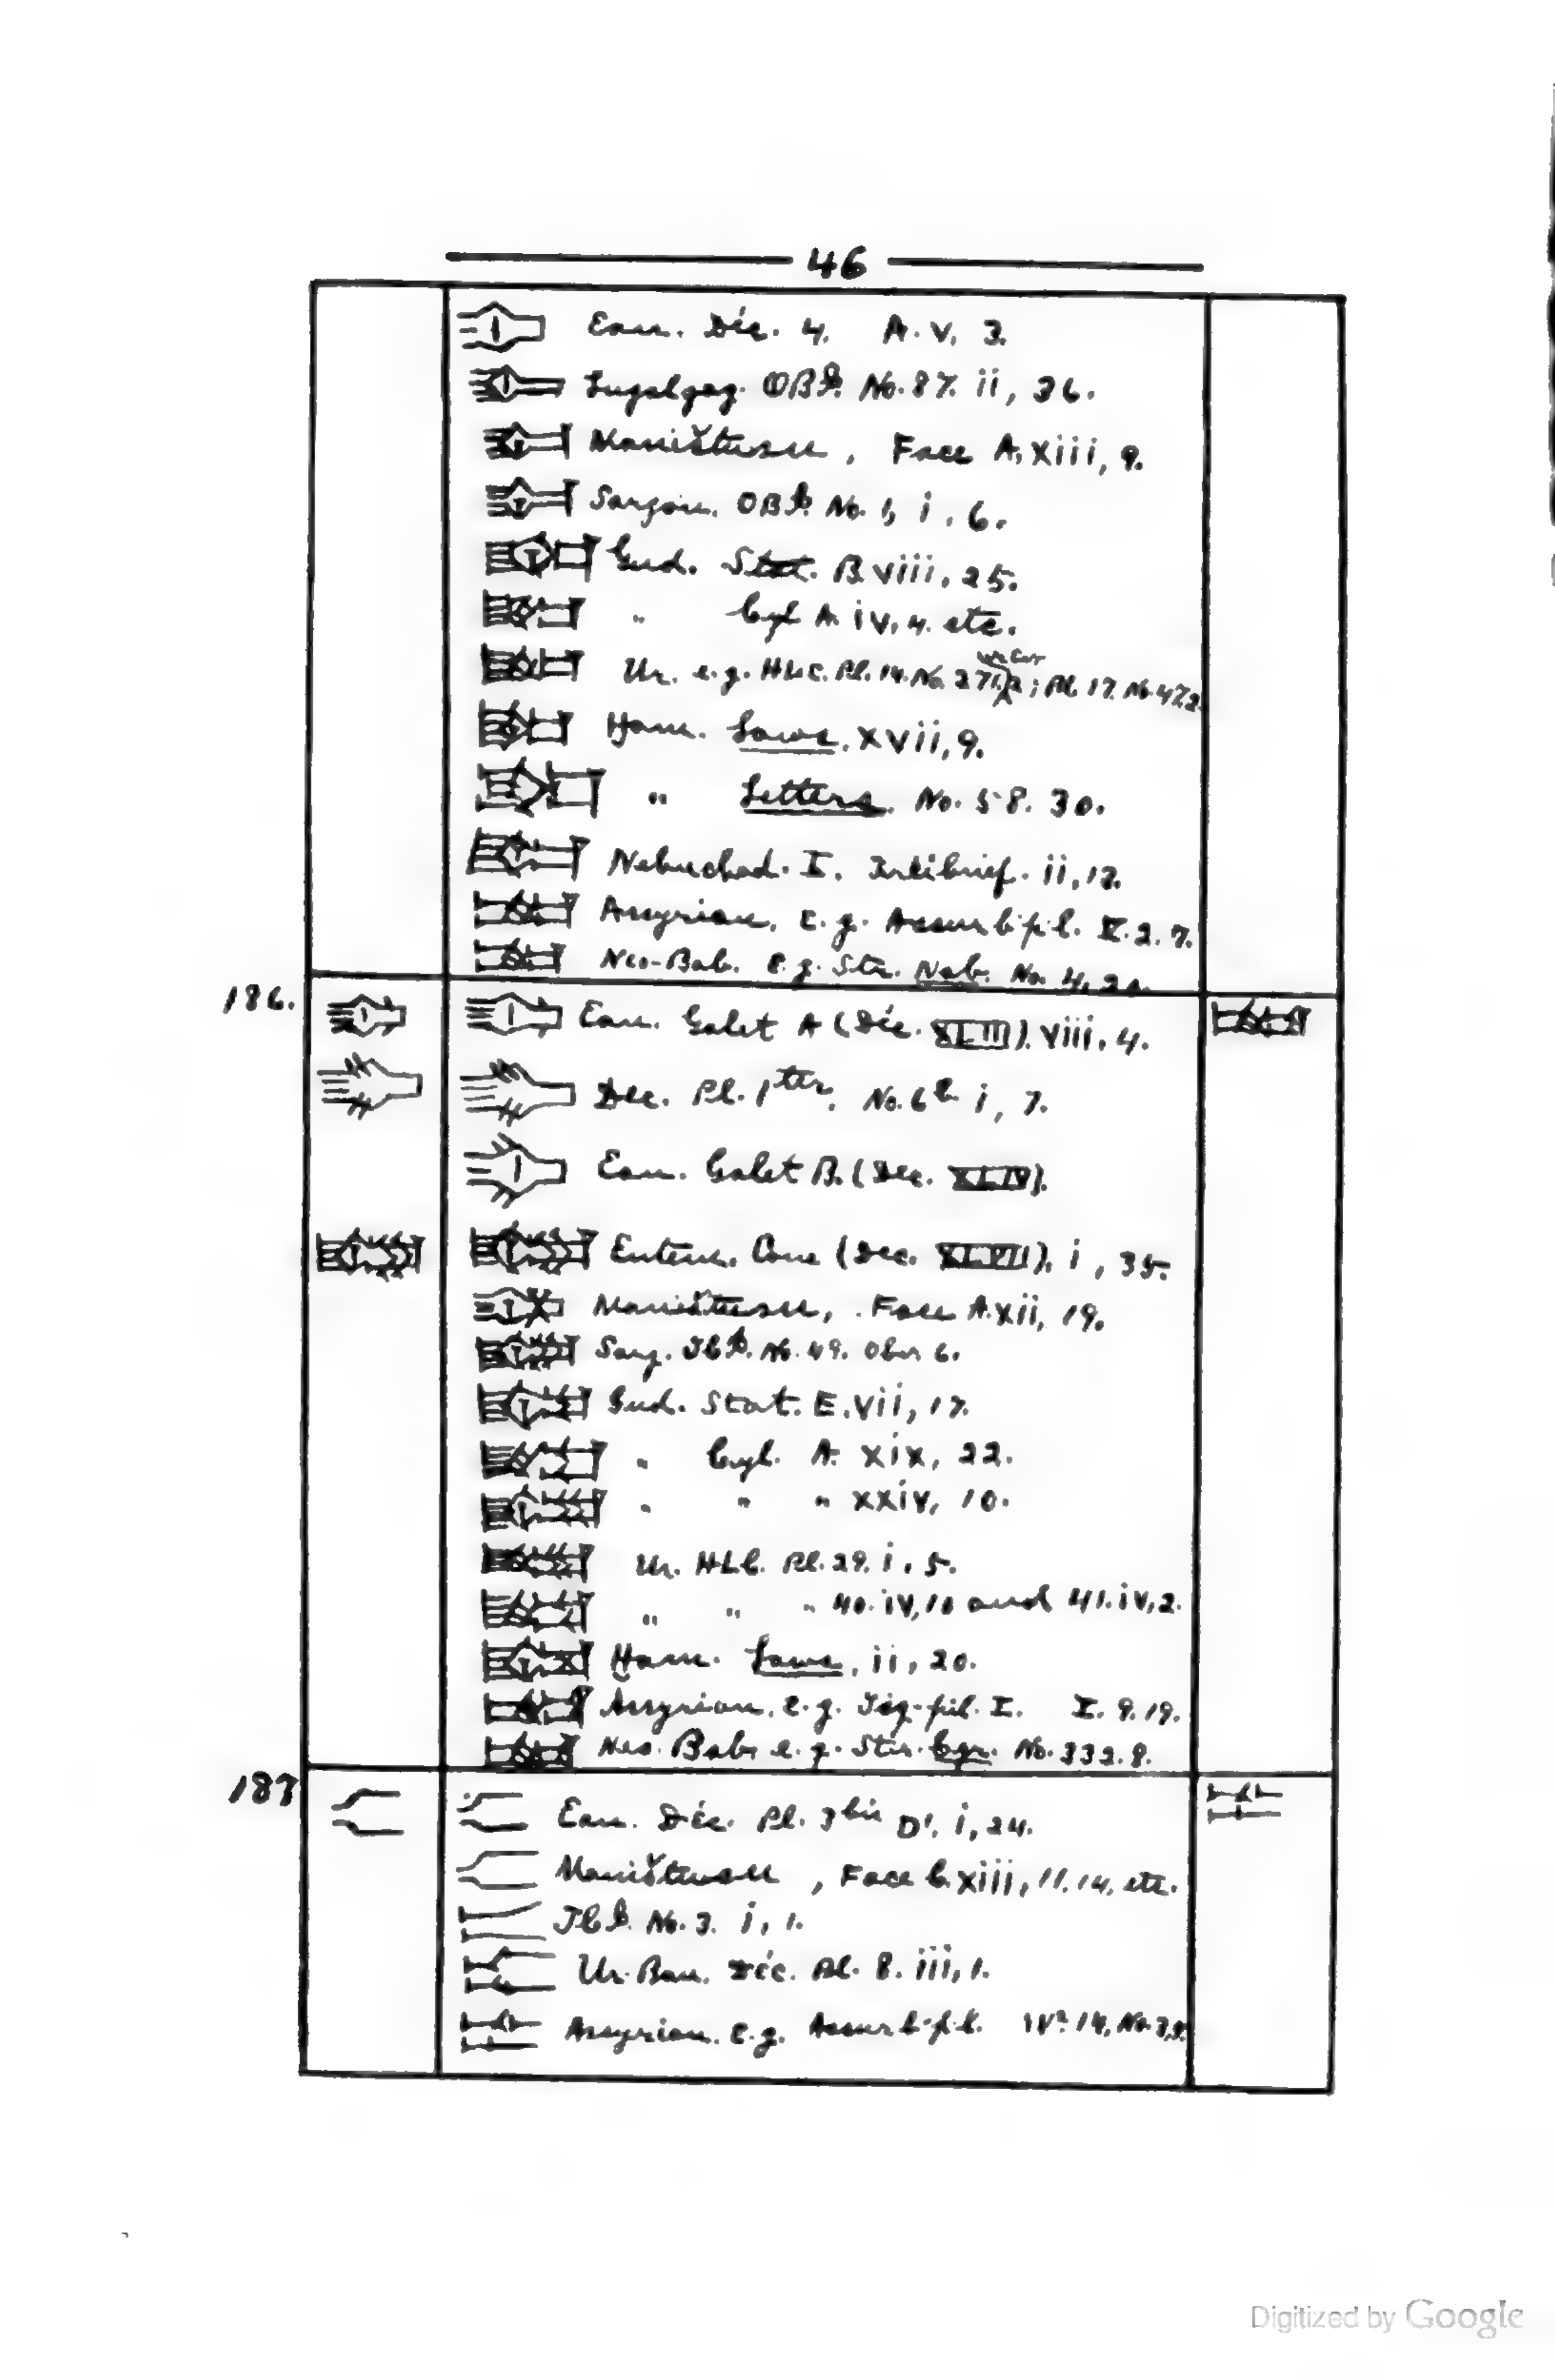 46
Ean. Déc. 4. A. V, 3.
Lugalzag. OBI. No. 87. ii, 36.
Maništusu, Face A. xiii, 9.
Sargon. OBI. No. 1, i, 6.
Gud. Stat. B. viii, 25.
" Cyl. A. iv, 4. etc.
Ur. e.g. HLC. Pl. 14. No. Pl. 17. No. 47.2.
Ham. Laws. xvii, 9.
" Letters. No. 58. 30.
Nebuchad. I. ii, 17.
Assyrian, e.g. Assurb-p-l. V. 2. 7.
Neo-Bab. e.g. Str. Nab. No. 4,
186. Ean. Galet A (Déc. XLIII). viii, 4.
Dec. Pl. 1ter. No. 6b i, 7.
Ean. Galet B. (Dec. XLIV).
Entem. Cone (Dec. XLVII). i, 35.
Maništusu, Face A. xii, 19.
Sarg. No. 49. Obv. 6.
Gud. Stat. E. vii, 17.
" Cyl. A. xix, 22.
" " " xxiv, 10.
Ur. HLC. Pl. 29. i, 5.
" " " 40. iv, 10 and 41. iv, 2.
Ham. Laws, ii, 20.
Assyrian, e.g. Tig-pil. I. I. 9. 19.
Neo. Bab. e.g. Str. Cyr. No. 332. 8.
187 Ean. Déc. Pl. 3bis D'. i, 24.
Maništusu, Face C. xiii, 11. 14. etc.
No. 3. i, 1.
Ur-Bau. Déc. Pl. 8. iii, 1.
Assyrian. e.g. Assurb-p-l. No.
Digitized by Google